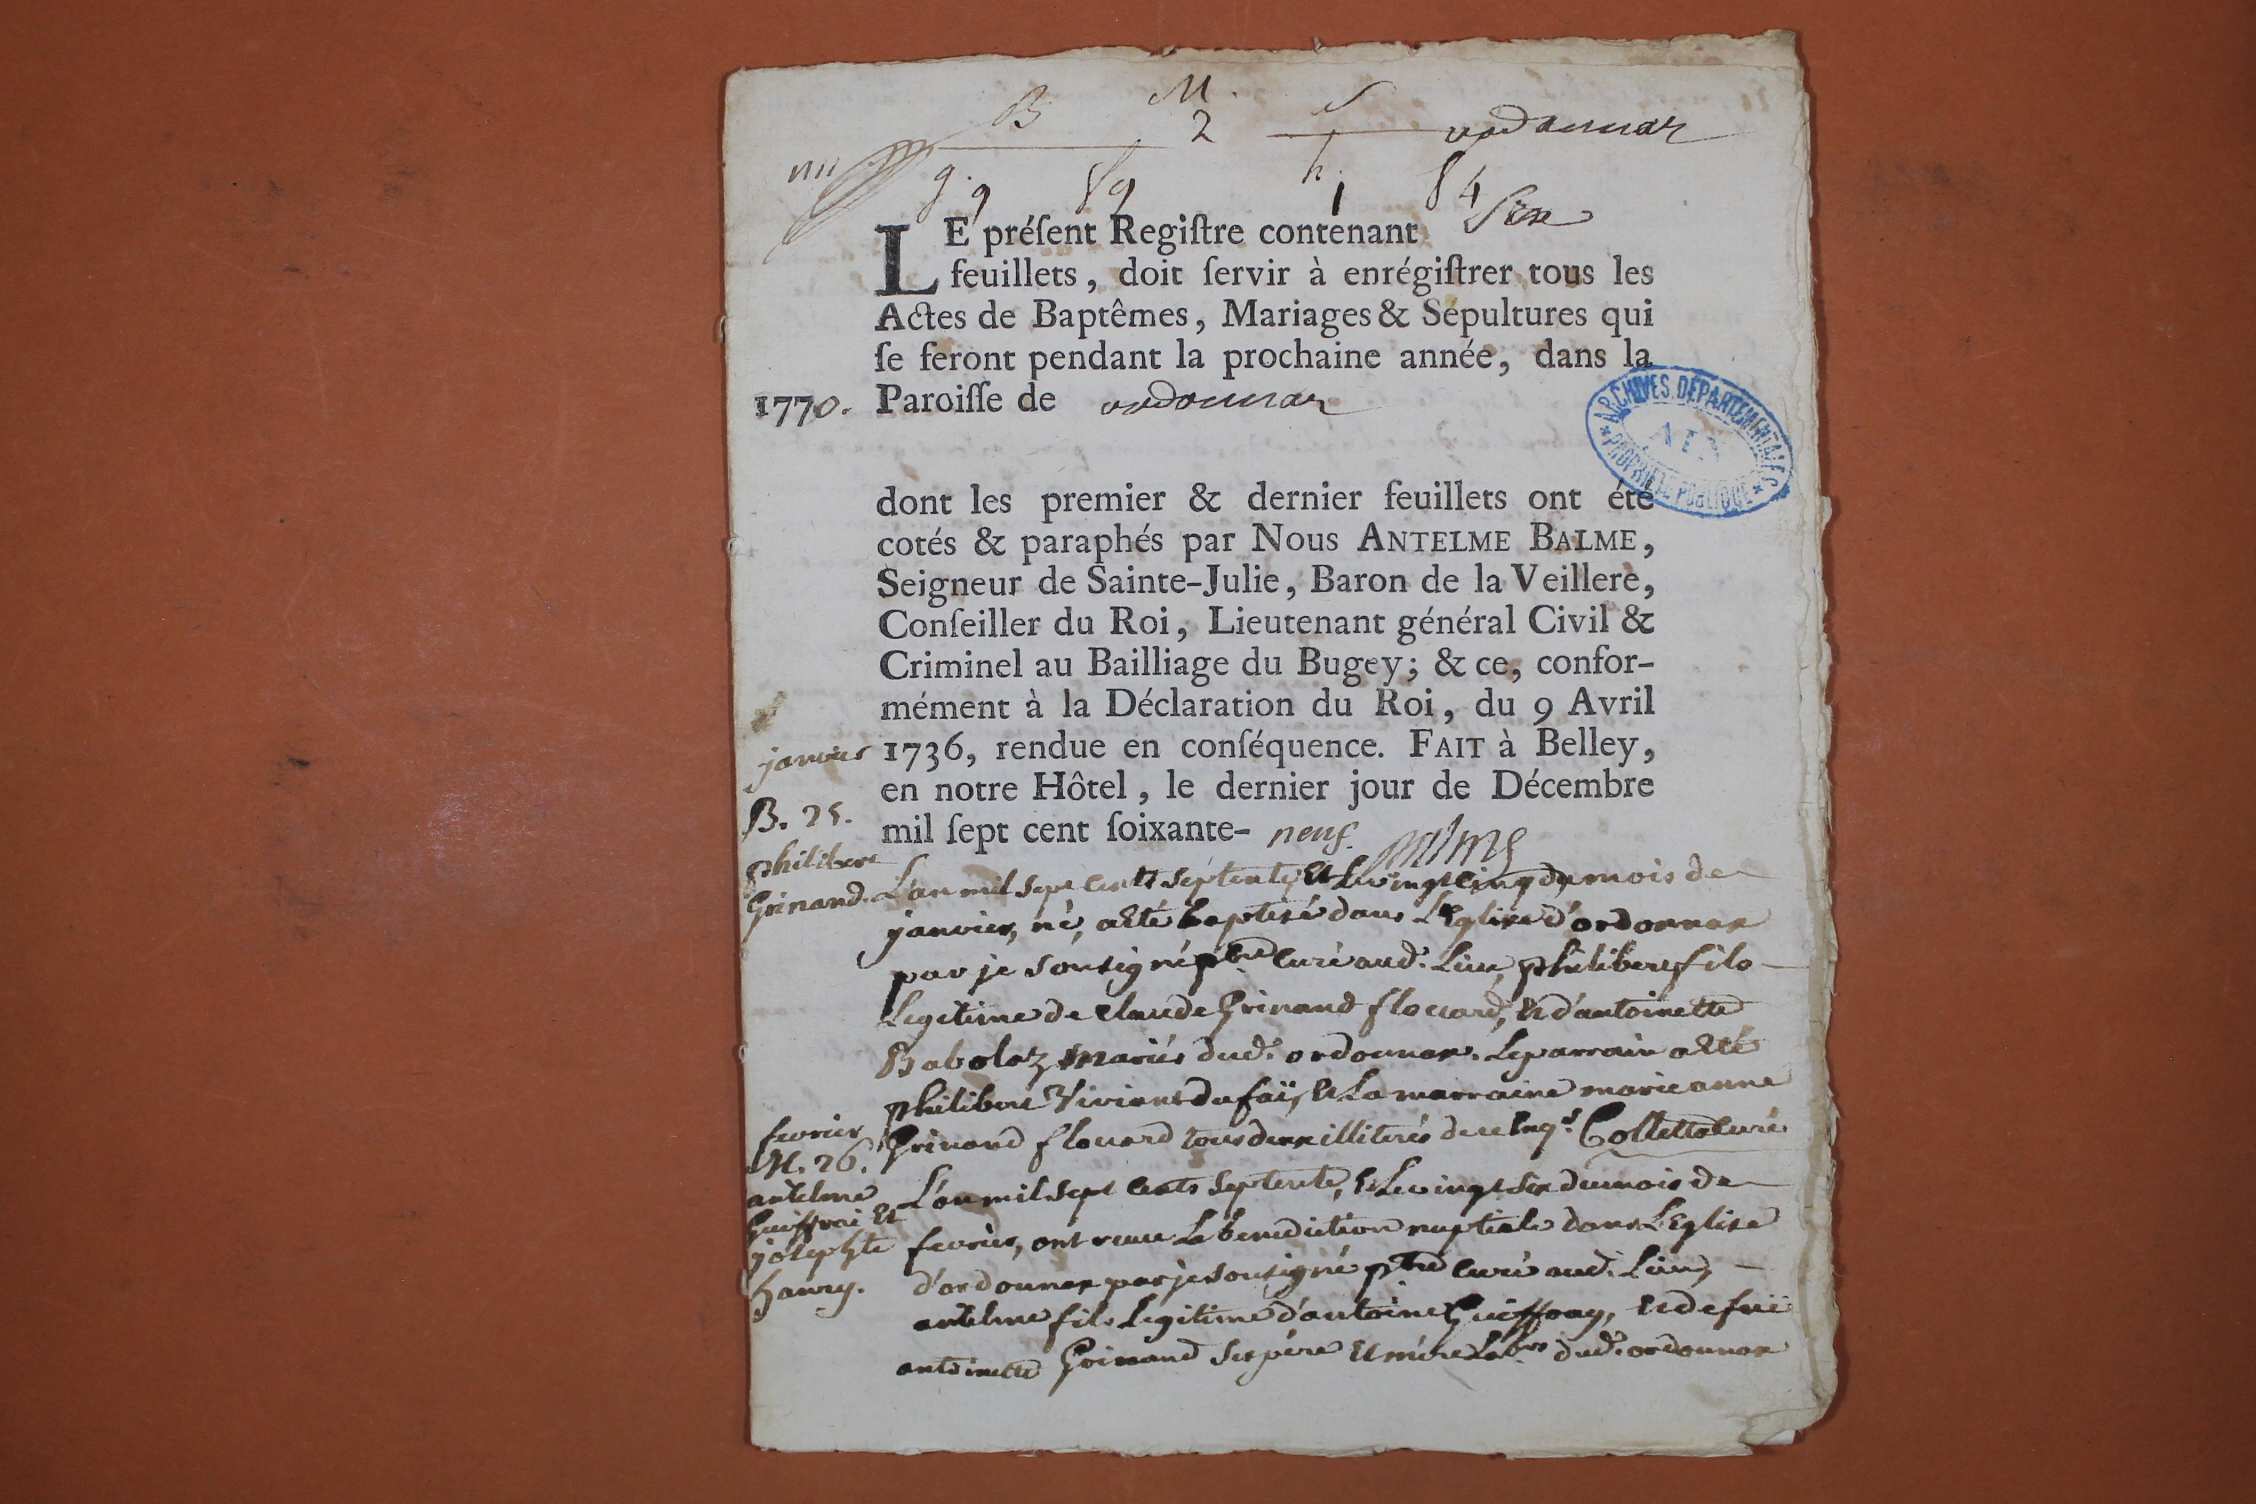 B M. S
2 ordonnaz
g. 9 f 9 h. 1 f 4
LE préſent Regiſtre contenant Six
feuillets, doit ſervir à enrégiſtrer tous les
Actes de Baptêmes, Mariages & Sépultures qui
ſe feront pendant la prochaine année, dans la
1770. Paroiſſe de ordonnaz
ARCHIVES DÉPARTEMENTALES
AIN
PROPRIÉTÉ PUBLIQUE
dont les premier & dernier feuillets ont été
cotés & paraphés par Nous ANTELME BALME,
Seigneur de Sainte-Julie, Baron de la Veillere,
Conſeiller du Roi, Lieutenant général Civil &
Criminel au Bailliage du Bugey; & ce, confor-
mément à la Déclaration du Roi, du 9 Avril
1736, rendue en conſéquence. FAIT à Belley,
en notre Hôtel, le dernier jour de Décembre
mil ſept cent ſoixante- neuf. Balme
janvier
B. 25.
philibert
Grinand.
L'an mil sept cents septente, et le vingt cinq du mois de
janvier, né, a été baptisé dans L'Eglise d'ordonnax
par je sousigné ptre curé aud. Lieu, philibert fils
Legitime de Claude Grinand flouard, et d'antoinette
Babolaz mariés dud. ordonnax. Le parrain a été
philibert Vivient du faÿ, et La marraine marie anne
Grinand flouard tous deux illiterés de ce enqs. Colletta curé
fevrier
M. 26.
antelme
Guiffrai et
josephte
hanry.
L'an mil sept cents septente, et Le vingt six du mois de
fevrier, ont recue La benediction nuptiale dans L'Eglise
d'ordonnax par je sousigné ptre curé aud. Lieu,
antelme fils Legitime d'antoine Guiffray, et de fuë
antoinette Grinand ses père et mère Labrs dud. ordonnax